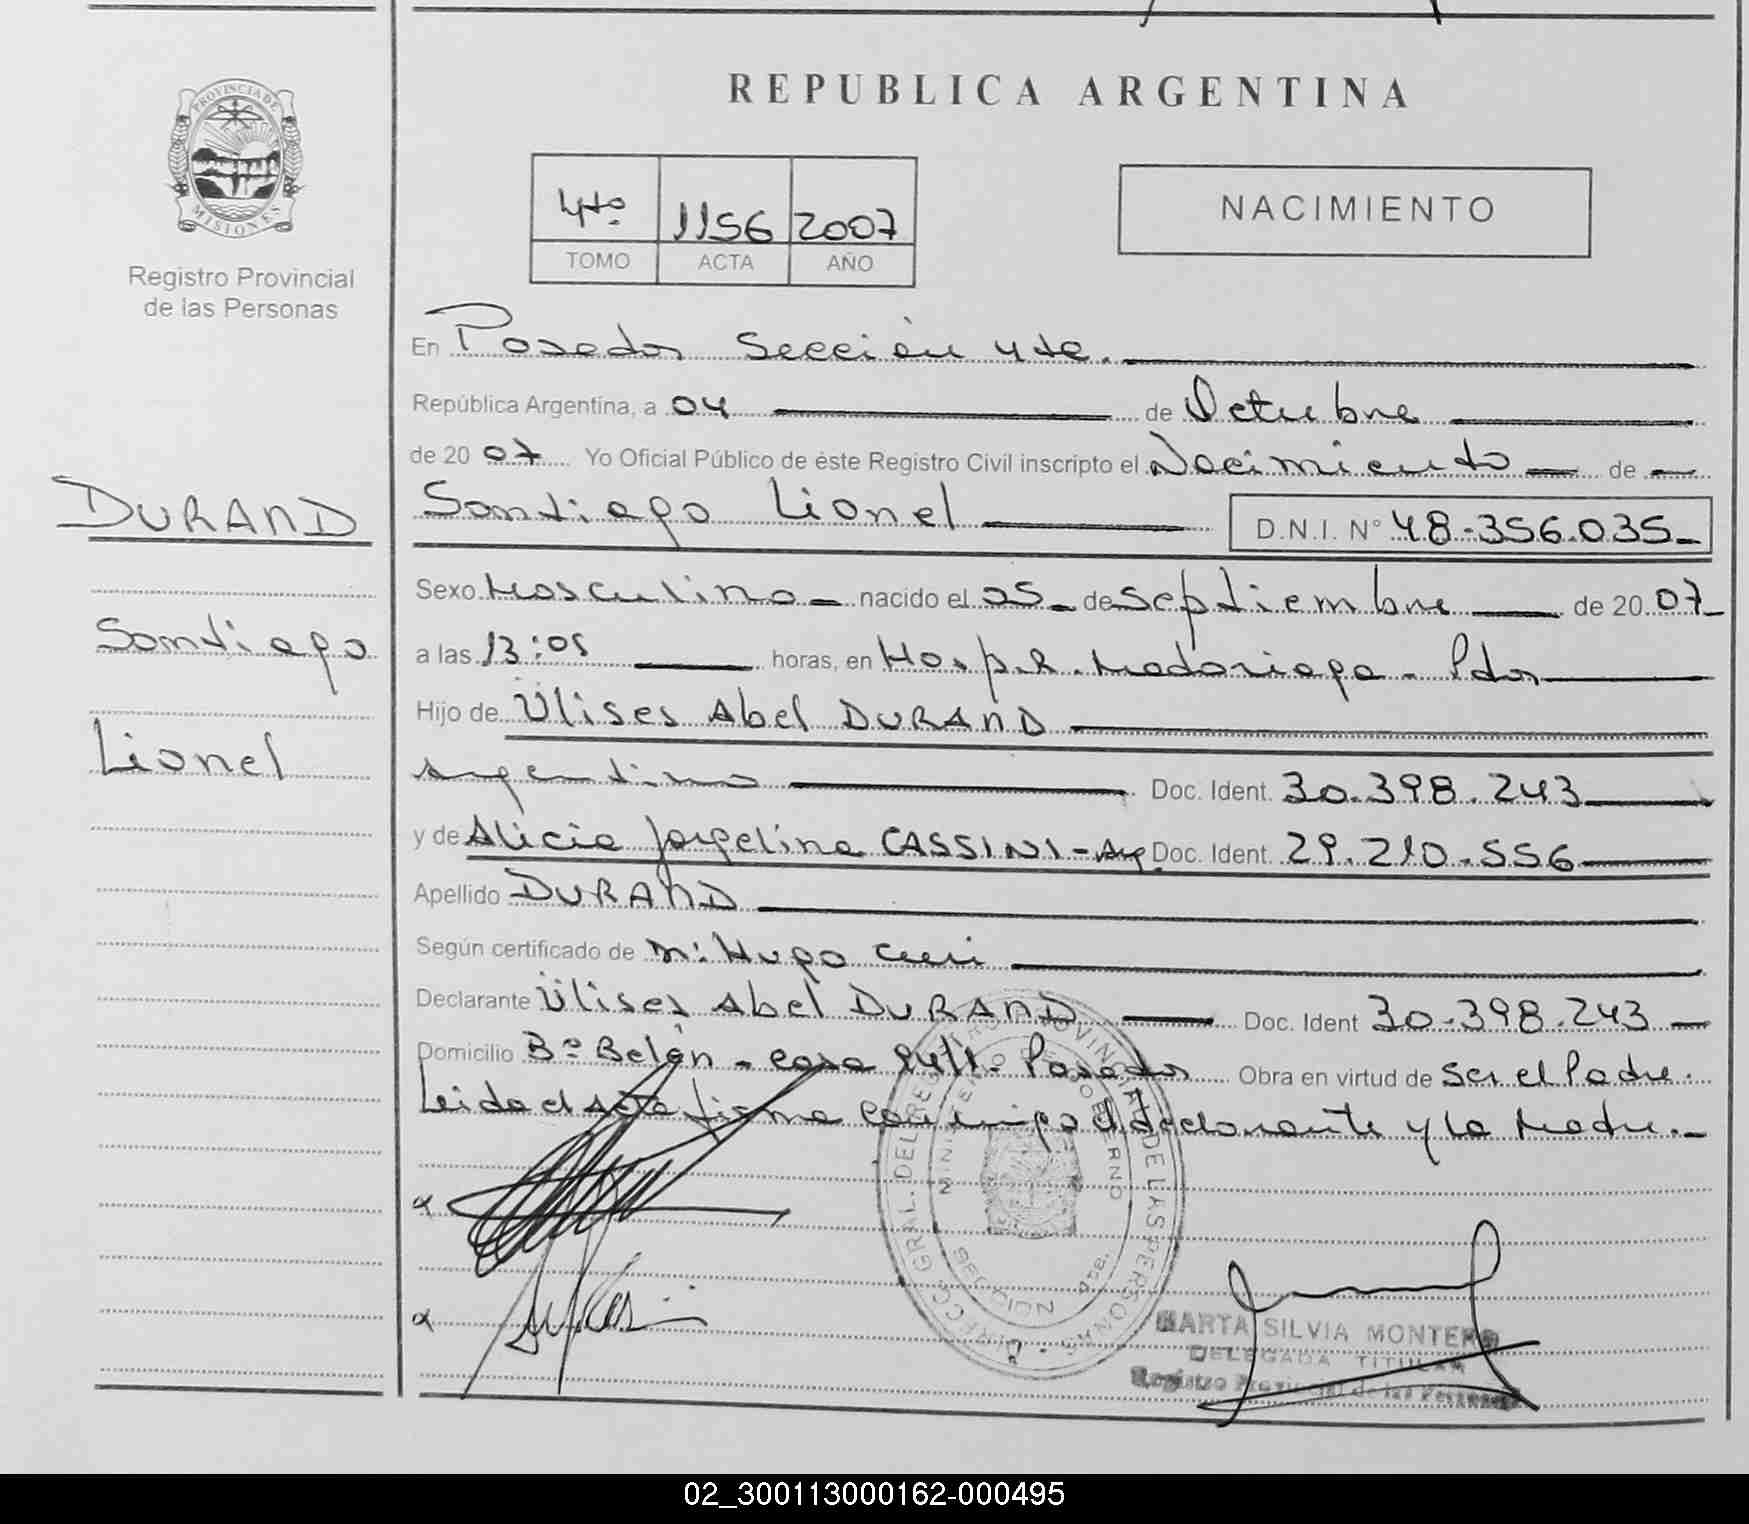 PROVINCIA DE
MISIONES
Registro Provincial
de las Personas
REPUBLICA ARGENTINA
4to 1156 2007
TOMO ACTA AÑO
NACIMIENTO
En Posadas Sección 4ta.
República Argentina, a 04 de Octubre
de 20 07 Yo Oficial Público de éste Registro Civil inscripto el Nacimiento de
DURAND
Santiago Lionel D.N.I. N° 48.356.035
Sexo Masculino nacido el 25 de Septiembre de 20 07
Santiago
a las 13:05 horas, en Hosp. R. Madariaga - Pdas
Hijo de Ulises Abel DURAND
Lionel
Argentino Doc. Ident. 30.398.243
y de Alicia Jorgelina CASSINI - Arg. Doc. Ident. 29.210.556
Apellido DURAND
Según certificado de Hugo
Declarante Ulises Abel DURAND Doc. Ident 30.398.243
Domicilio Bº Belén - casa Posadas Obra en virtud de ser el Padre.
Leida el acta firma conmigo el declarante y la Madre.
DIRECC. GRAL. DEL REGISTRO PROVINCIAL DE LAS PERSONAS
MINISTERIO DE GOBIERNO
SECCION 4ta.
MARTA SILVIA MONTERO
DELEGADA TITULAR
Registro Provincial de las Personas
02_300113000162-000495